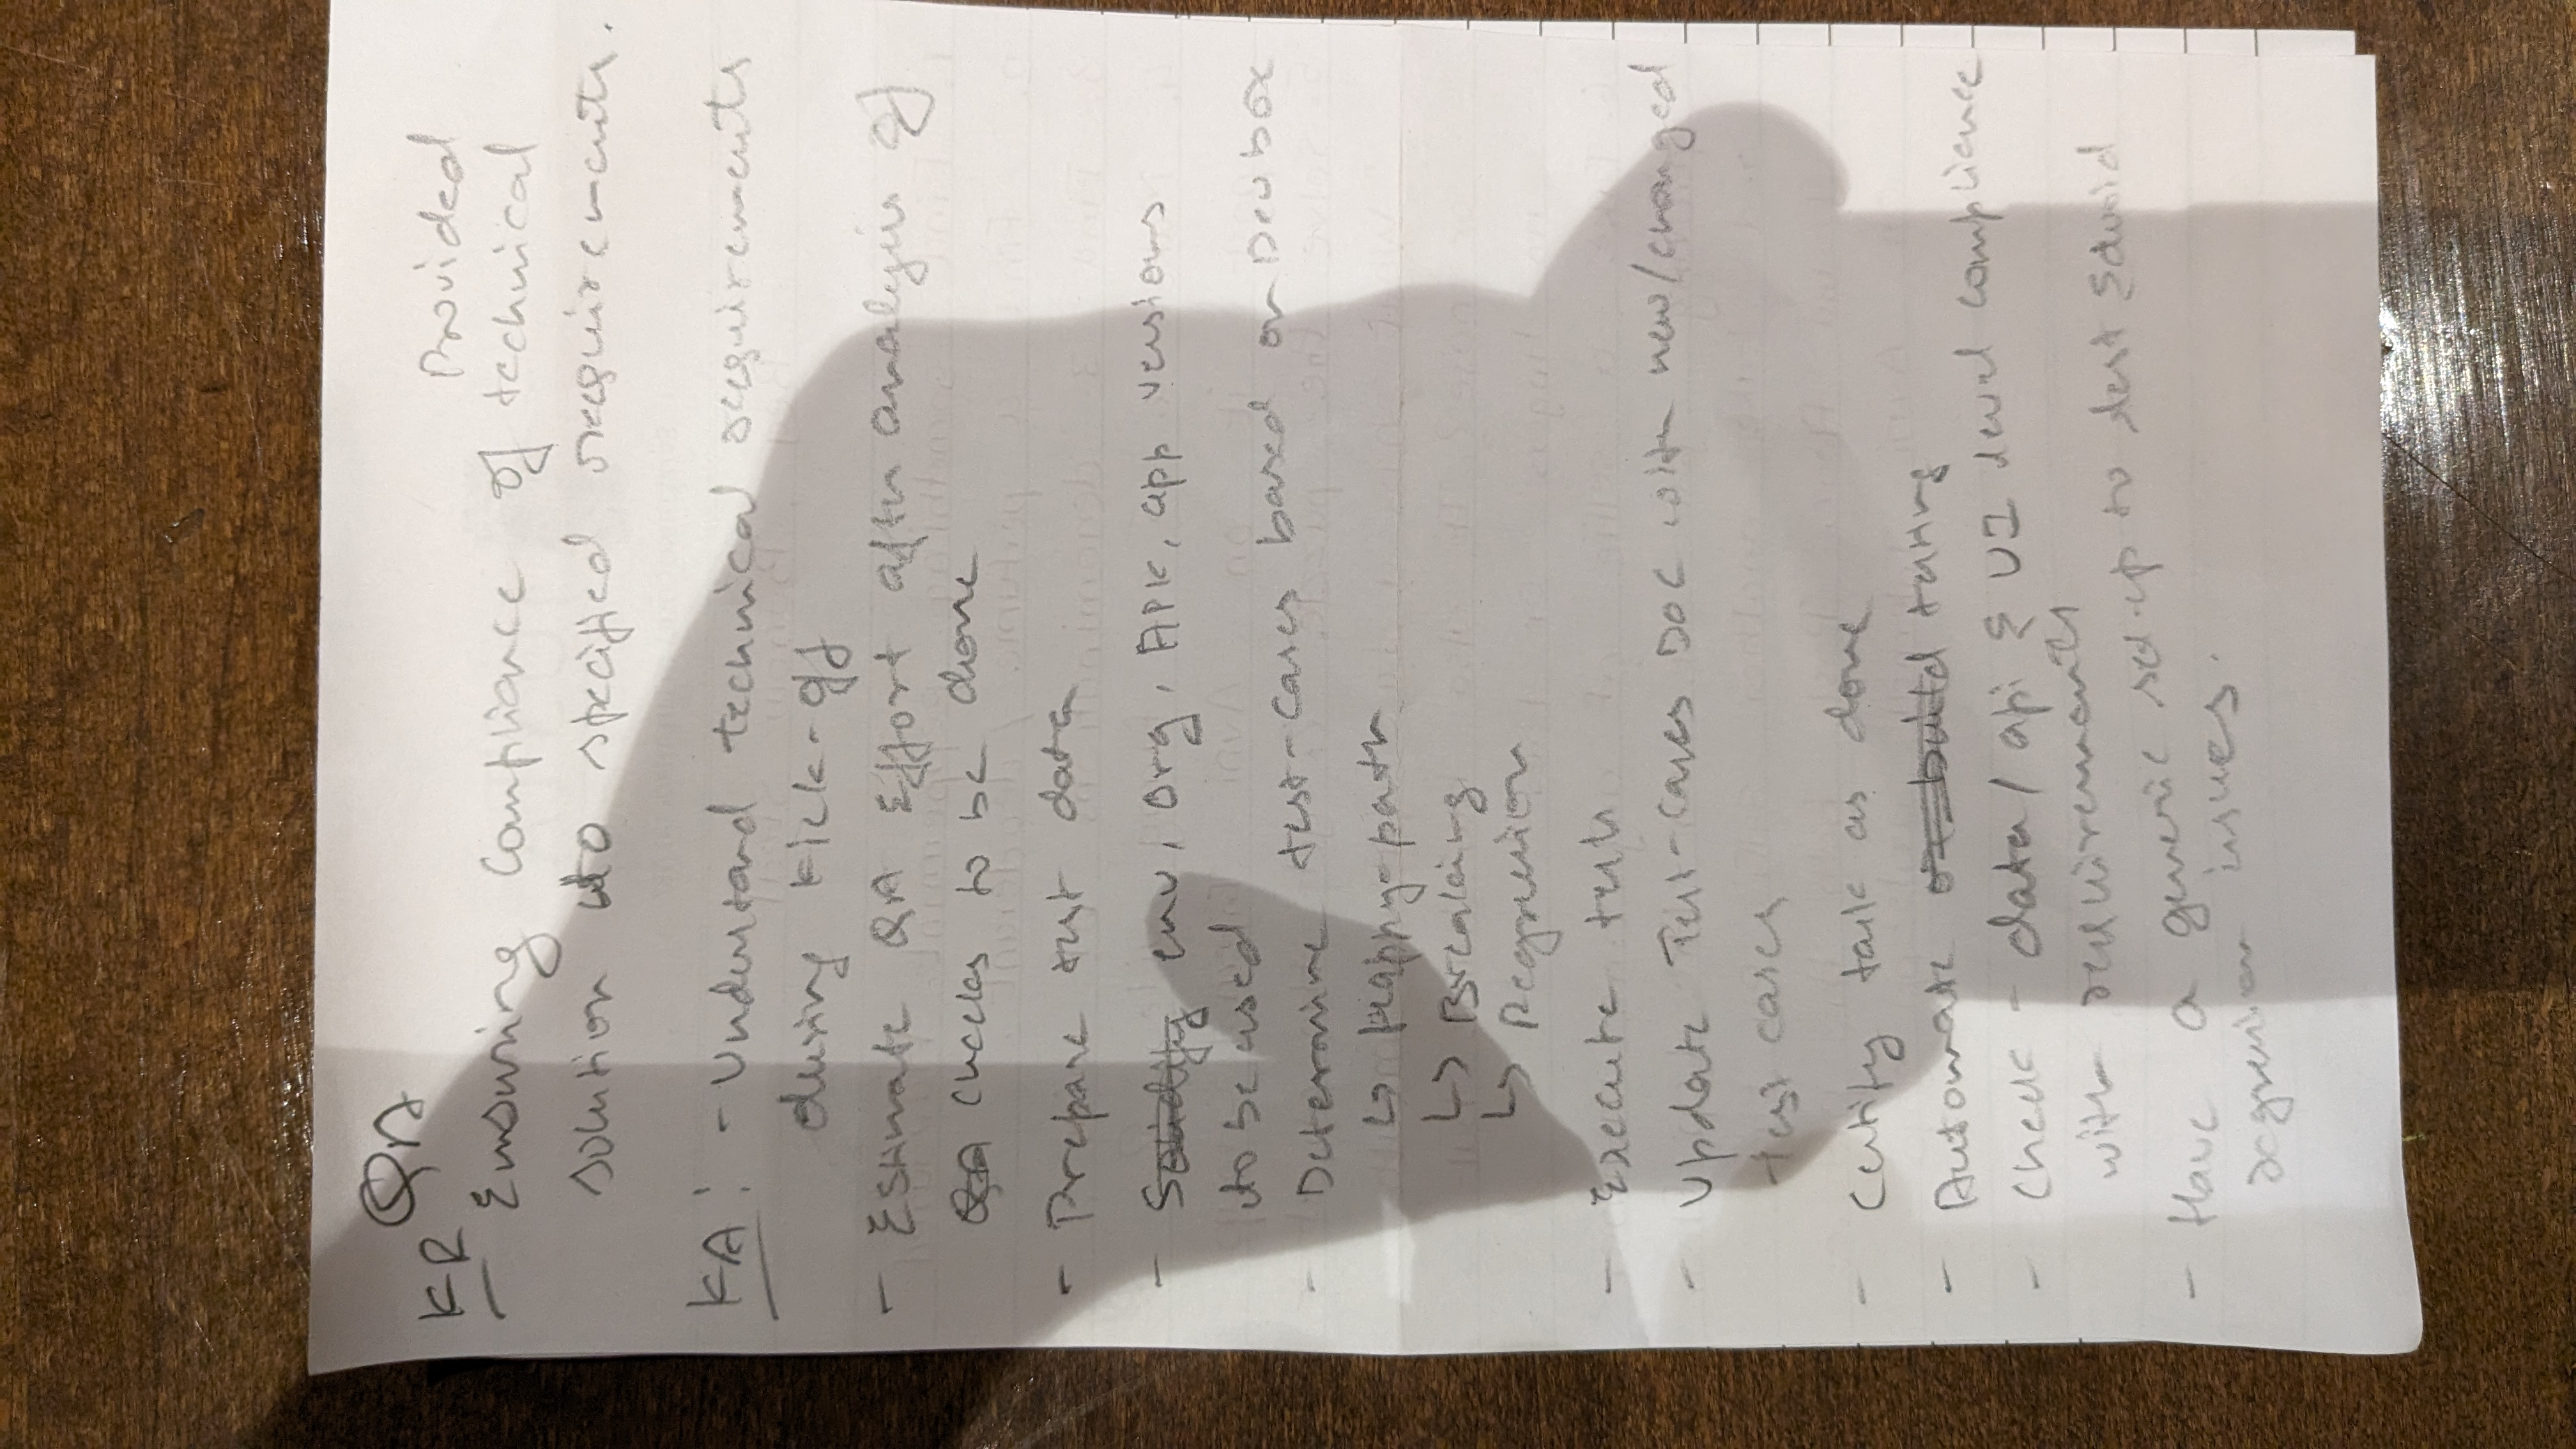 QA
KR Provided
Ensuring Compliance of technical
solution to specified requirements.
KA: - Understand technical requirements
during kick-off
- Estimate QA Effort after analysis of
QA cycles to be done
- Prepare test data
- env, org, APK, app versions
to be used
- Determine test-cases based on Dev box
↳ Happy-path
↳ Breaking
↳ Regression
- Execute tests
- Update Test-cases DOC with new/changed
test cases
- Certify task as done
- Automate testing
- Check - data/api & UI level complience
with requirements
- Have a generic set-up to test &
regression issues.